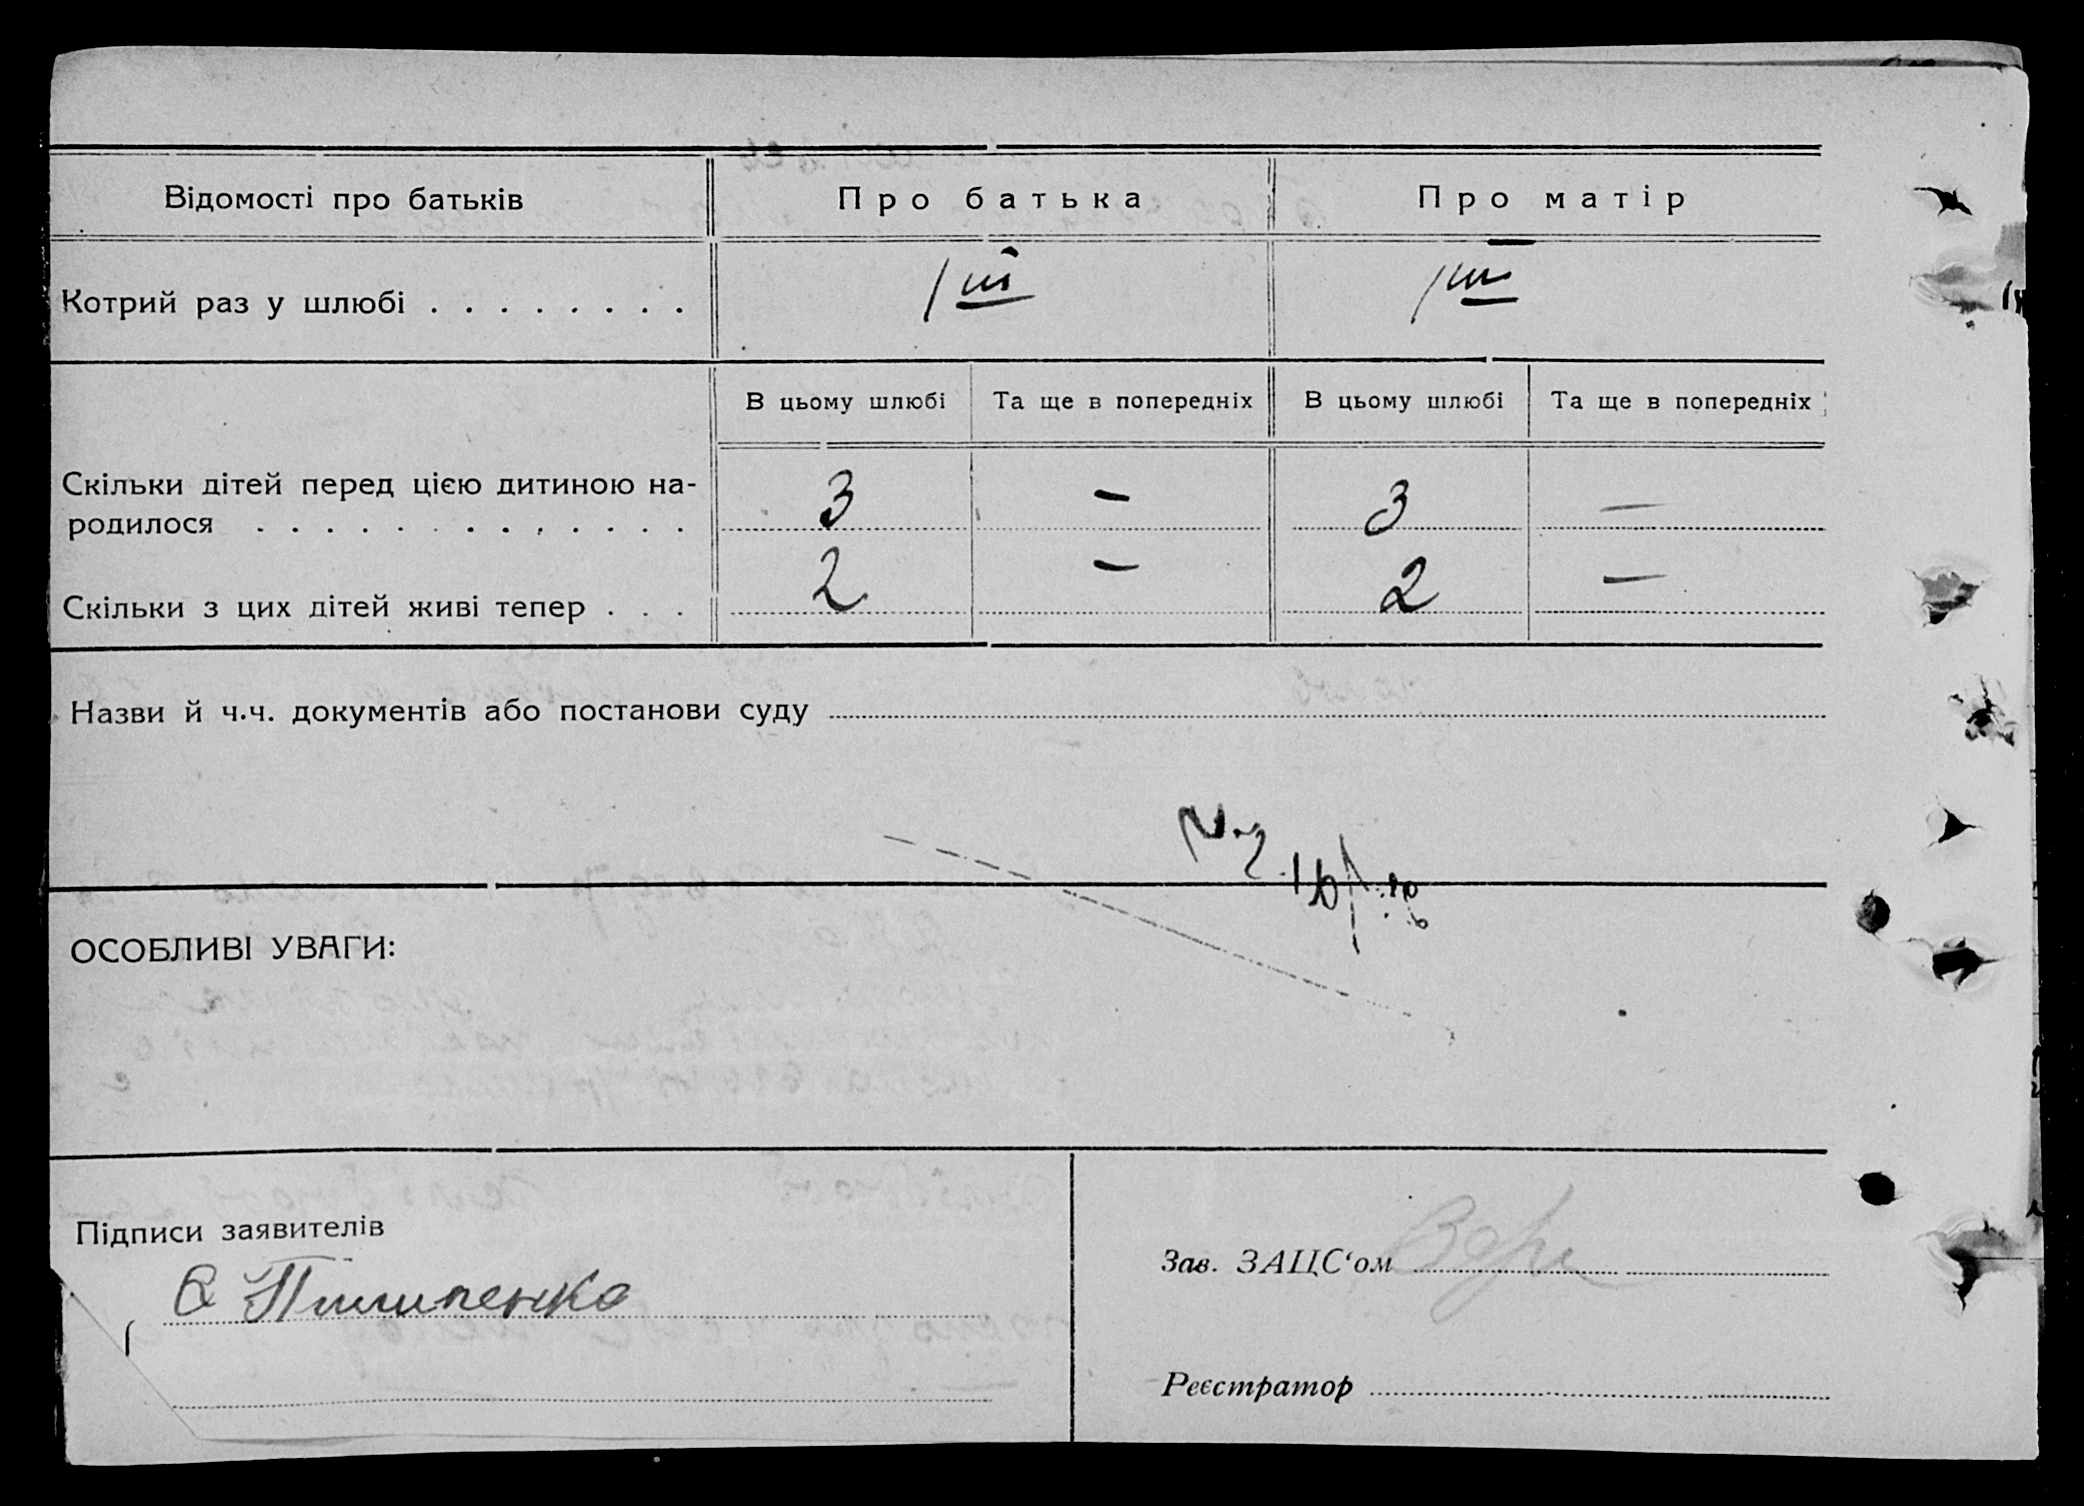 Відомості про батьків Про батька Про матір
Котрий раз у шлюбі . . . . . . . . 1ий 1ий
В цьому шлюбі Та ще в попередніх В цьому шлюбі Та ще в попередніх
Скільки дітей перед цією дитиною на-
родилося . . . . . . . . . . . . . 3 – 3 –
Скільки з цих дітей живі тепер . . . 2 – 2 –
Назви й ч.ч. документів або постанови суду
ОСОБЛИВІ УВАГИ:
Підписи заявителів
Пилипенко
Зав. ЗАЦС‘ом
Реєстратор